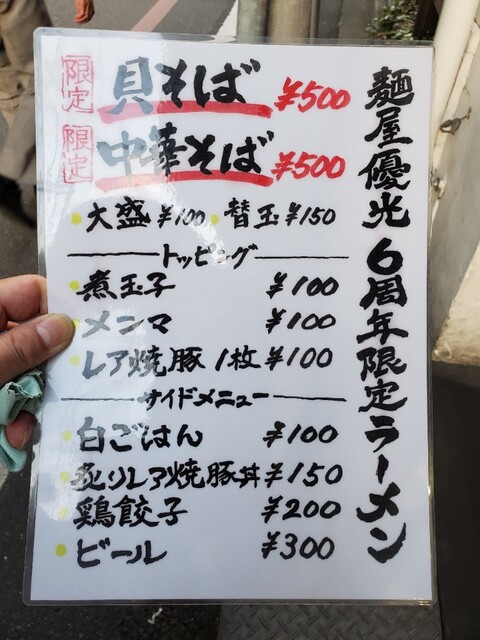 麺屋優光 6周年限定ラーメン
限定 貝そば ¥500
限定 中華そば ¥500
大盛 ¥100 替玉 ¥150
トッピング
煮玉子 ¥100
メンマ ¥100
レア焼豚 1枚 ¥100
サイドメニュー
白ごはん ¥100
炙りレア焼豚丼 ¥150
鶏餃子 ¥200
ビール ¥300